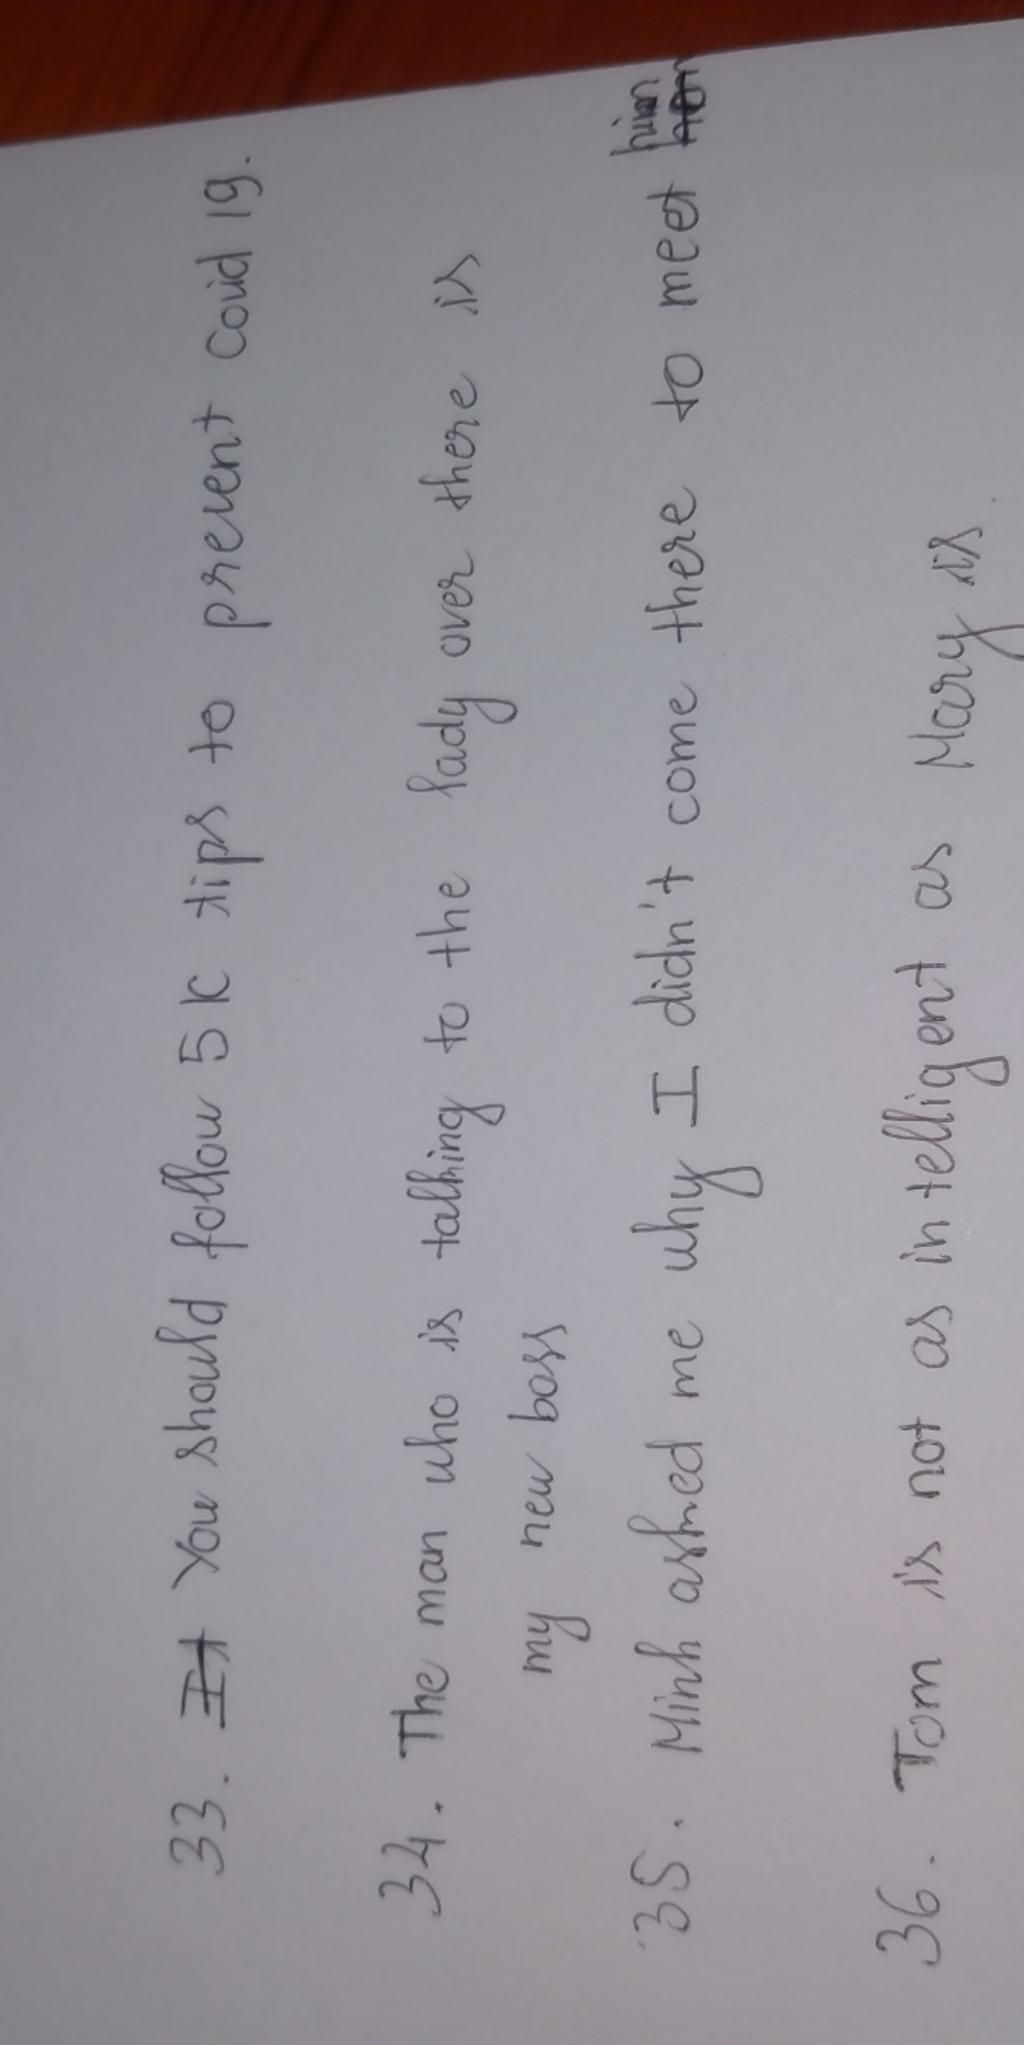 33. It You should follow 5K tips to prevent covid 19.
34. The man who is talking to the lady over there is
my new boss
35. Minh asked me why I didn't come there to meet him
36. Tom is not as intelligent as Mary is.